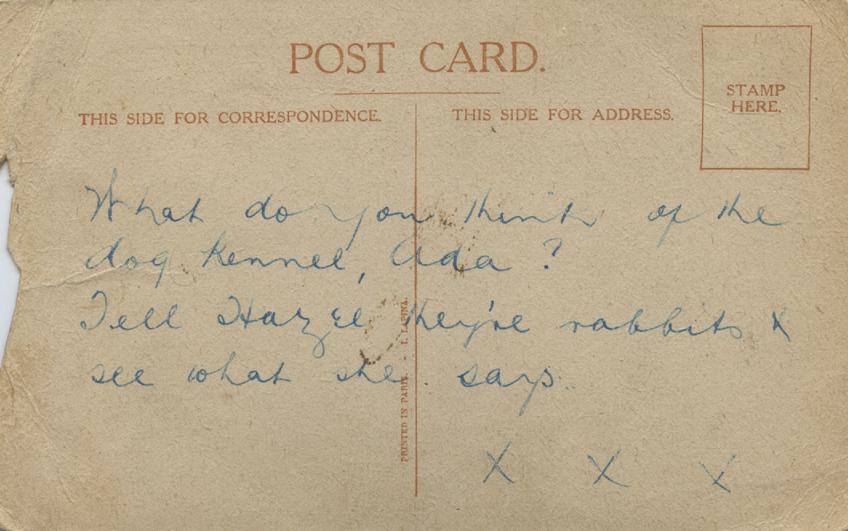 POST CARD.
THIS SIDE FOR CORRESPONDENCE.
THIS SIDE FOR ADDRESS.
STAMP
HERE.
What do you think of the
dog kennel, Ada ?
Tell Hazel they're rabbits &
see what she says.
X X X
PRINTED IN PARIS. - I. LAPINA.